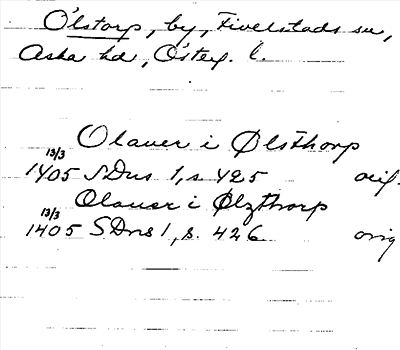 Ölstorp, by, Fivelstads sn,
Aska hd, Östg. l.
Olauer i Ølsthorp
13/3
1405 SDns 1, s 425 orig.
Olauer i Ølzthorp
13/3
1405 SDns 1, s. 426 orig